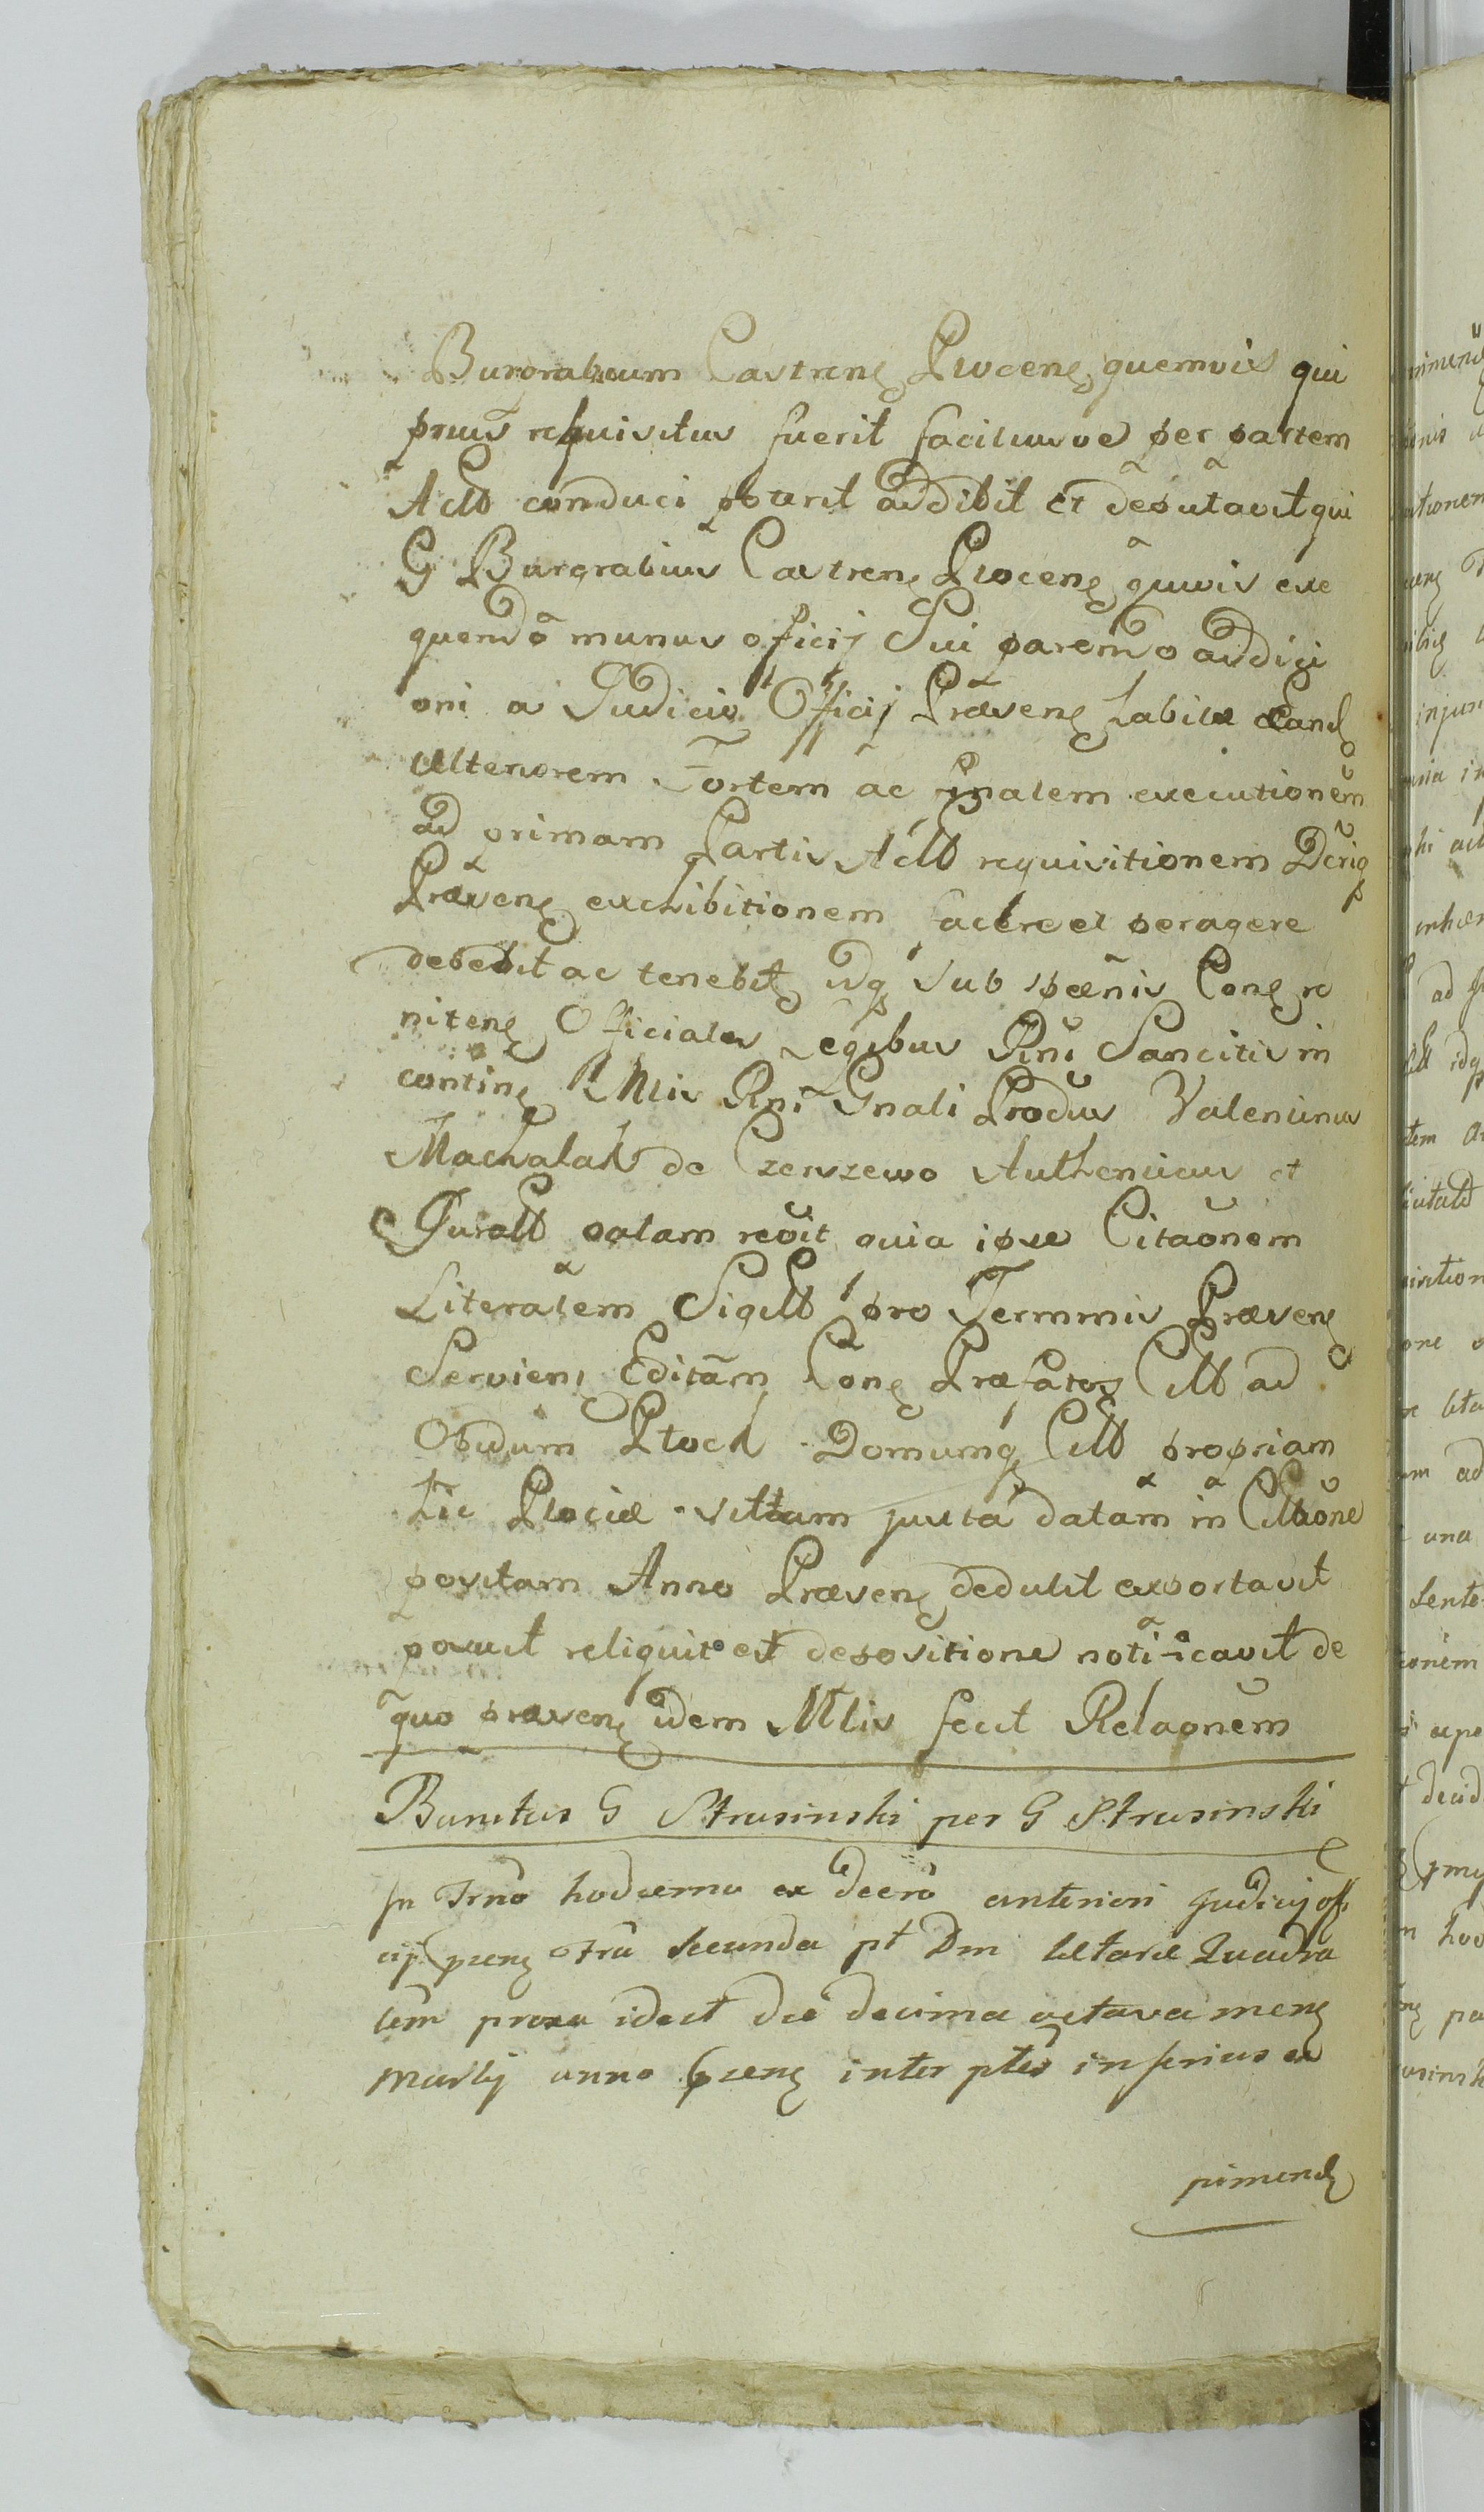 Burgrabium Castrens Plocens quemvis qui
prius requisitus fuerit faciliusve per partem
Actt conduci poterit addibit et deputavit qui
G Burgrabius Castrens Plocens quivis exe
quendo munus officij Sui parendo addici
oni a Judicio Officij Præsens habitæ Eand
ulteriorem Fortem ac finalem executionem
ad primam Partis Actt requisitionem Decrig
Præsens exchibitionem facere et peragere
debebit ac tenebit idq sub pœnis Cons re
nitens Officiales Legibus Rñi Sancitis in
contins Mlis Rñi Gnali Produs Valentinus
Machalak de Czerszewo Authenticus et
Juratt palam recoit quia ipse Citaõnem
Literalem Sigill pro Terminis Præsens
Serviens Editam Cons Præfatos Citt ad
Opidum Plock Domumq Citt propriam
hic Plociæ sittam juxta datam in Cittaõne
positam Anno Præsens detulit exportavit
posuit reliquit et depositione notificavit de
quo præsens idem Mlis fecit Relaõnem
Banitus G Strusinski per G Strusinski
In Trno hodierno ex decro anteriori Judicij off
cij præns Fria Secunda pt Dm lætare Quadra
lem proxa idest die decima octava mens
martij anno præns inter ptes inferius ex
primend